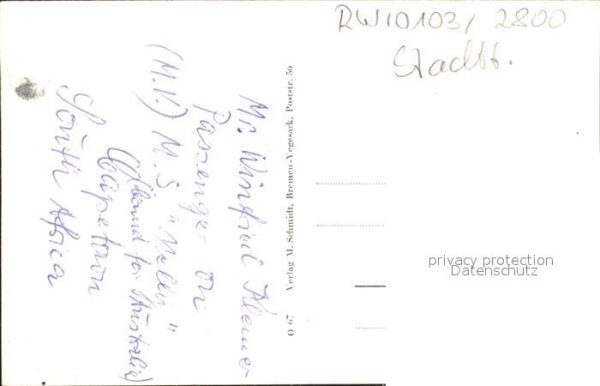 RW10103/ 2800
Stadtt.
Mr. Winfried
Passenger on
(M.V.) M.S. "
(Bound for Australia)
Capetown
South Africa
O 67 Verlag M. Schmidt, Bremen-Vegesack, Poststr. 50
privacy protection
Datenschutz